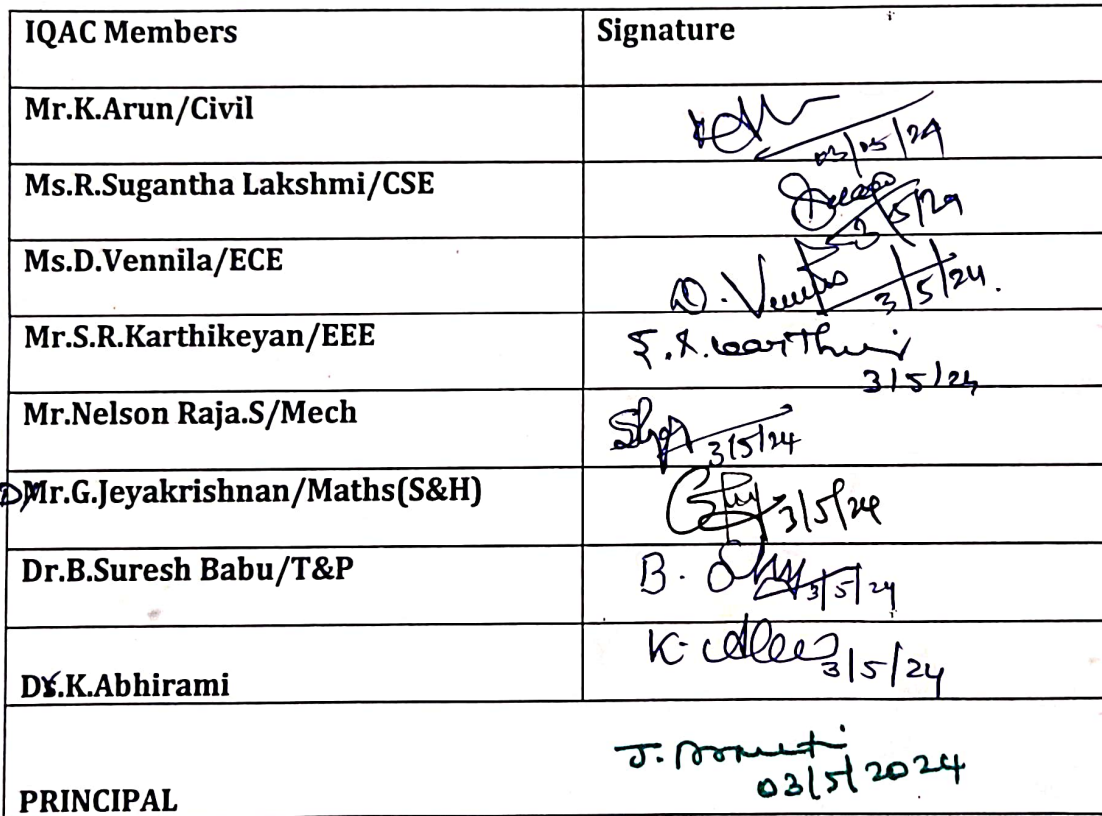 IQAC Members Signature
Mr.K.Arun/Civil 03/05/24
Ms.R.Sugantha Lakshmi/CSE 3/5/24
Ms.D.Vennila/ECE D. 3/5/24.
Mr.S.R.Karthikeyan/EEE 3/5/24
Mr.Nelson Raja.S/Mech 3/5/24
Mr.G.Jeyakrishnan/Maths(S&H) 3/5/24
Dr.B.Suresh Babu/T&P B. 3/5/24
K. 3/5/24
.K.Abhirami
J.
03/5/2024
PRINCIPAL